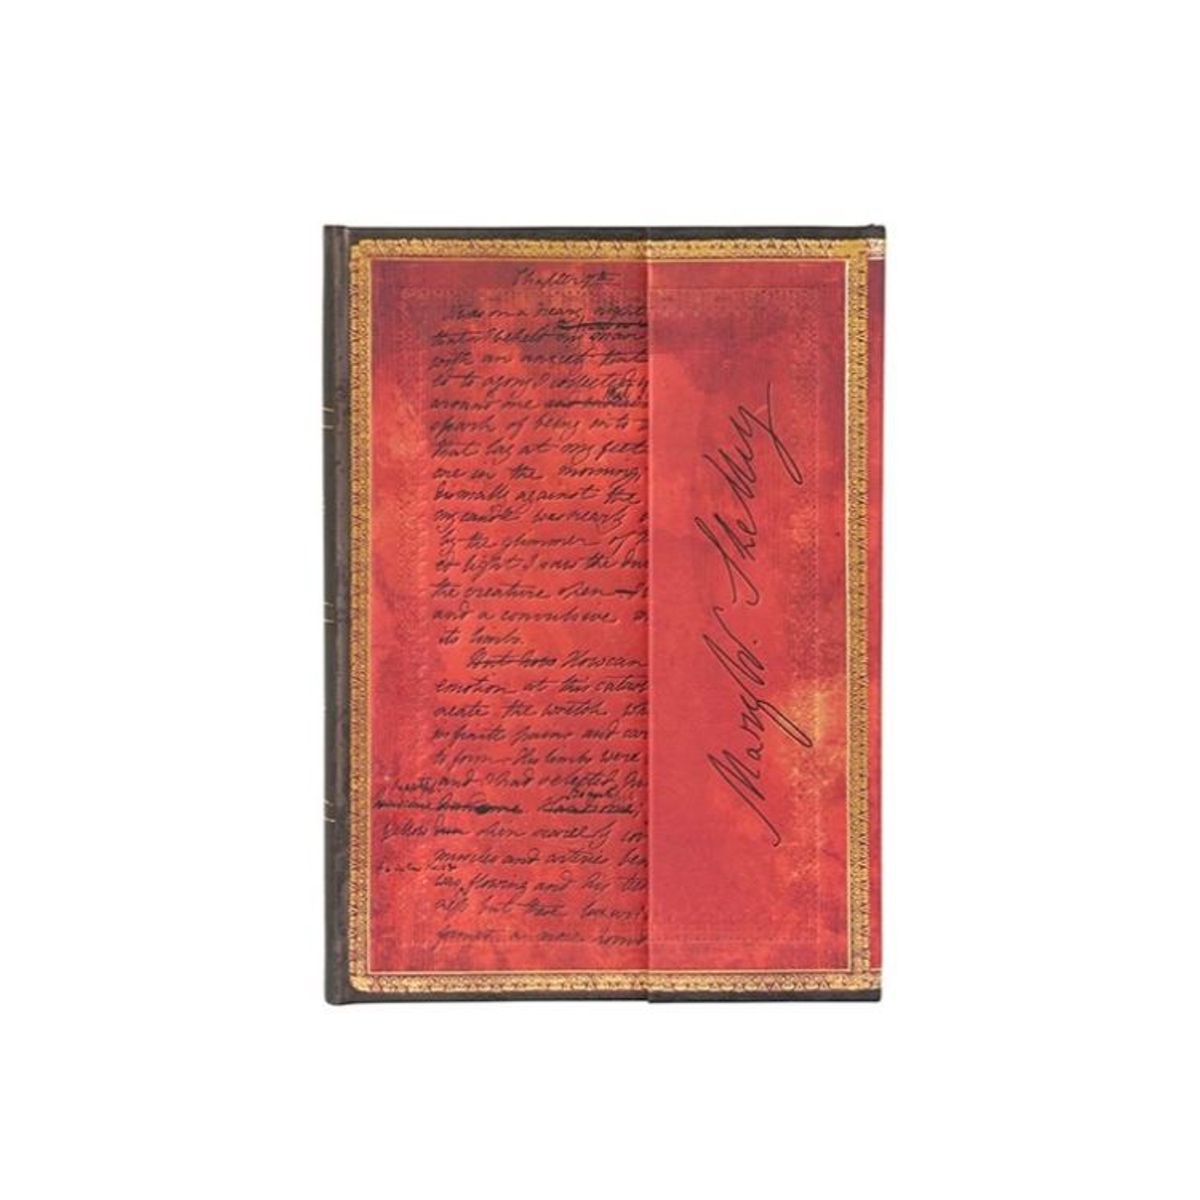 Chapter 7th
on a dreary night
that I beheld my man
with an anxiety that
ed to agony I collected
around one
spark of being into
that lay at my feet
one in the morning,
dismally against the
my candle was nearly
by the glimmer of
ed light I saw the
the creature open
and a convulsive
its limbs.
But how How can
emotion at this catas
ineate the wretch
infinite pains and car
to form. His limbs were
and I had selected his
handsome Handsome;
yellow skin scarcely cov
muscles and arteries ben
was flowing and his teeth
ness but these luxuri
formed a more
Mary W. Shelley